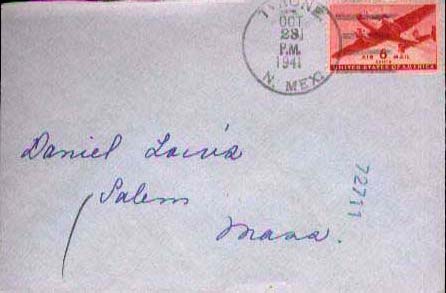 TYRONE
OCT
23
P.M.
1941
N. MEX.
6
AIR MAIL
UNITED STATES OF AMERICA
Daniel
Salem
Mass.
72711